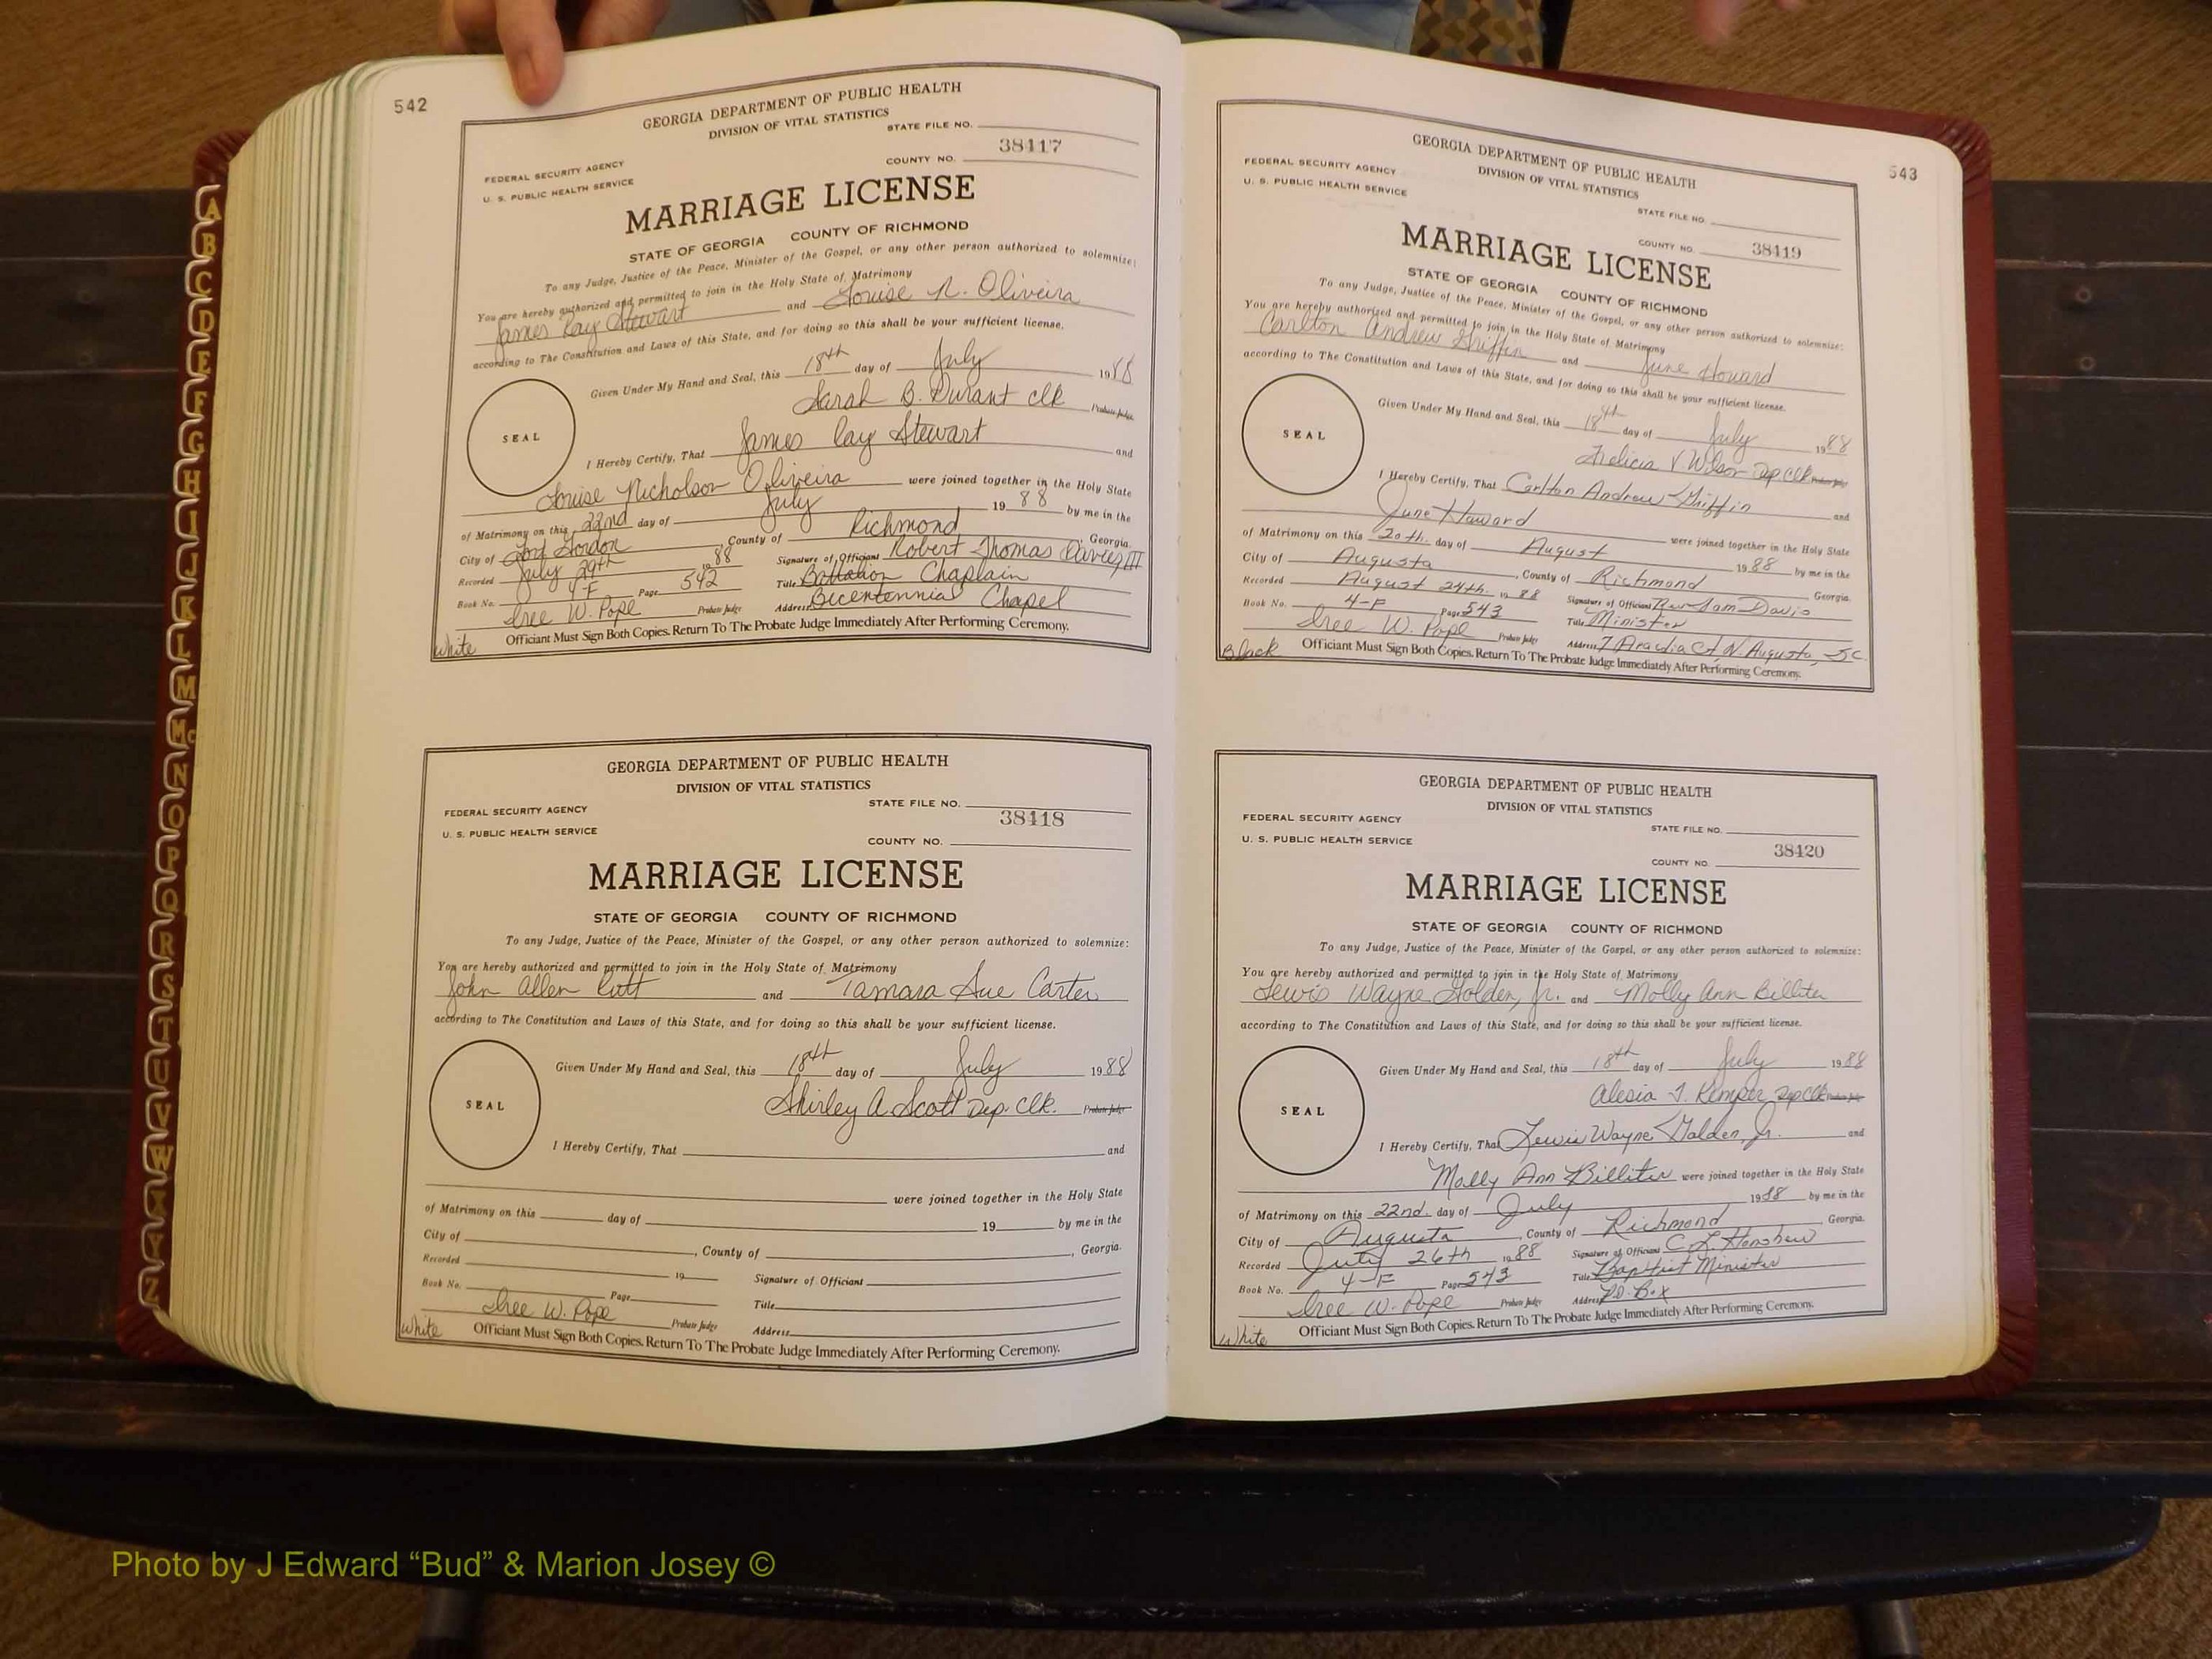 542
GEORGIA DEPARTMENT OF PUBLIC HEALTH
DIVISION OF VITAL STATISTICS
STATE FILE NO.
38417
FEDERAL SECURITY AGENCY
COUNTY NO.
U. S. PUBLIC HEALTH SERVICE
MARRIAGE LICENSE
STATE OF GEORGIA COUNTY OF RICHMOND
To any Judge, Justice of the Peace, Minister of the Gospel, or any other person authorized to solemnize:
You are hereby authorized and permitted to join in the Holy State of Matrimony
James Ray Stewart and Louise N. Oliveira
according to The Constitution and Laws of this State, and for doing so this shall be your sufficient license.
Given Under My Hand and Seal, this 18th day of July 1988
Sarah B. Durant clk Probate Judge
SEAL
I Hereby Certify, That James Ray Stewart and
Louise Nicholson Oliveira were joined together in the Holy State
of Matrimony on this 22nd day of July 19 88 by me in the
City of Fort Gordon, County of Richmond, Georgia.
Recorded July 29th 19 88 Signature of Officiant Robert Thomas Davies III
Book No. 4-F Page 542 Title Battalion Chaplain
Iree W. Pope Probate Judge Address Bicentennial Chapel
White Officiant Must Sign Both Copies. Return To The Probate Judge Immediately After Performing Ceremony.
GEORGIA DEPARTMENT OF PUBLIC HEALTH
DIVISION OF VITAL STATISTICS
STATE FILE NO.
FEDERAL SECURITY AGENCY
38418
U. S. PUBLIC HEALTH SERVICE
COUNTY NO.
MARRIAGE LICENSE
STATE OF GEORGIA COUNTY OF RICHMOND
To any Judge, Justice of the Peace, Minister of the Gospel, or any other person authorized to solemnize:
You are hereby authorized and permitted to join in the Holy State of Matrimony
John Allen and Tamara Sue Carter
according to The Constitution and Laws of this State, and for doing so this shall be your sufficient license.
Given Under My Hand and Seal, this 18th day of July 1988
Shirley A. Scott Dep. Clk. Probate Judge
SEAL
I Hereby Certify, That and
were joined together in the Holy State
of Matrimony on this day of 19 by me in the
City of , County of , Georgia.
Recorded 19 Signature of Officiant
Book No. Page Title
Iree W. Pope Probate Judge Address
White Officiant Must Sign Both Copies. Return To The Probate Judge Immediately After Performing Ceremony.
543
GEORGIA DEPARTMENT OF PUBLIC HEALTH
DIVISION OF VITAL STATISTICS
FEDERAL SECURITY AGENCY
U. S. PUBLIC HEALTH SERVICE
STATE FILE NO.
COUNTY NO. 38419
MARRIAGE LICENSE
STATE OF GEORGIA COUNTY OF RICHMOND
To any Judge, Justice of the Peace, Minister of the Gospel, or any other person authorized to solemnize:
You are hereby authorized and permitted to join in the Holy State of Matrimony
Carlton Andrew Griffin and June Howard
according to The Constitution and Laws of this State, and for doing so this shall be your sufficient license.
Given Under My Hand and Seal, this 18th day of July 1988
Felicia V. Wilson Dep. Clk Probate Judge
SEAL
I Hereby Certify, That Carlton Andrew Griffin and
June Howard were joined together in the Holy State
of Matrimony on this 20th. day of August 1988 by me in the
City of Augusta, County of Richmond Georgia.
Recorded August 24th. 19 88 Signature of Officiant Rev Sam Davis
Book No. 4-F Page 543 Title Minister
Iree W. Pope Probate Judge Address 7 Aracdia Ct N. Augusta, SC.
Black Officiant Must Sign Both Copies. Return To The Probate Judge Immediately After Performing Ceremony.
GEORGIA DEPARTMENT OF PUBLIC HEALTH
DIVISION OF VITAL STATISTICS
FEDERAL SECURITY AGENCY
STATE FILE NO.
U. S. PUBLIC HEALTH SERVICE
38420
COUNTY NO.
MARRIAGE LICENSE
STATE OF GEORGIA COUNTY OF RICHMOND
To any Judge, Justice of the Peace, Minister of the Gospel, or any other person authorized to solemnize:
You are hereby authorized and permitted to join in the Holy State of Matrimony
Lewis Wayne Golden, Jr. and Molly Ann Billiter
according to The Constitution and Laws of this State, and for doing so this shall be your sufficient license.
Given Under My Hand and Seal, this 18th day of July 1988
Alesia J. Kemper Dep Clk Probate Judge
SEAL
I Hereby Certify, That Lewis Wayne Golden, Jr. and
Molly Ann Billiter were joined together in the Holy State
of Matrimony on this 22nd. day of July 1988 by me in the
City of Augusta, County of Richmond Georgia.
Recorded July 26th 19 88 Signature of Officiant C. L. Henshew
Book No. 4-F Page 543 Title Baptist Minister
Iree W. Pope Probate Judge Address P.O. Box
White Officiant Must Sign Both Copies. Return To The Probate Judge Immediately After Performing Ceremony.
A
B
C
D
E
F
G
H
I
J
K
L
M
Mc
N
O
P
Q
R
S
T
U
V
W
X
Y
Z
Photo by J Edward “Bud” & Marion Josey ©